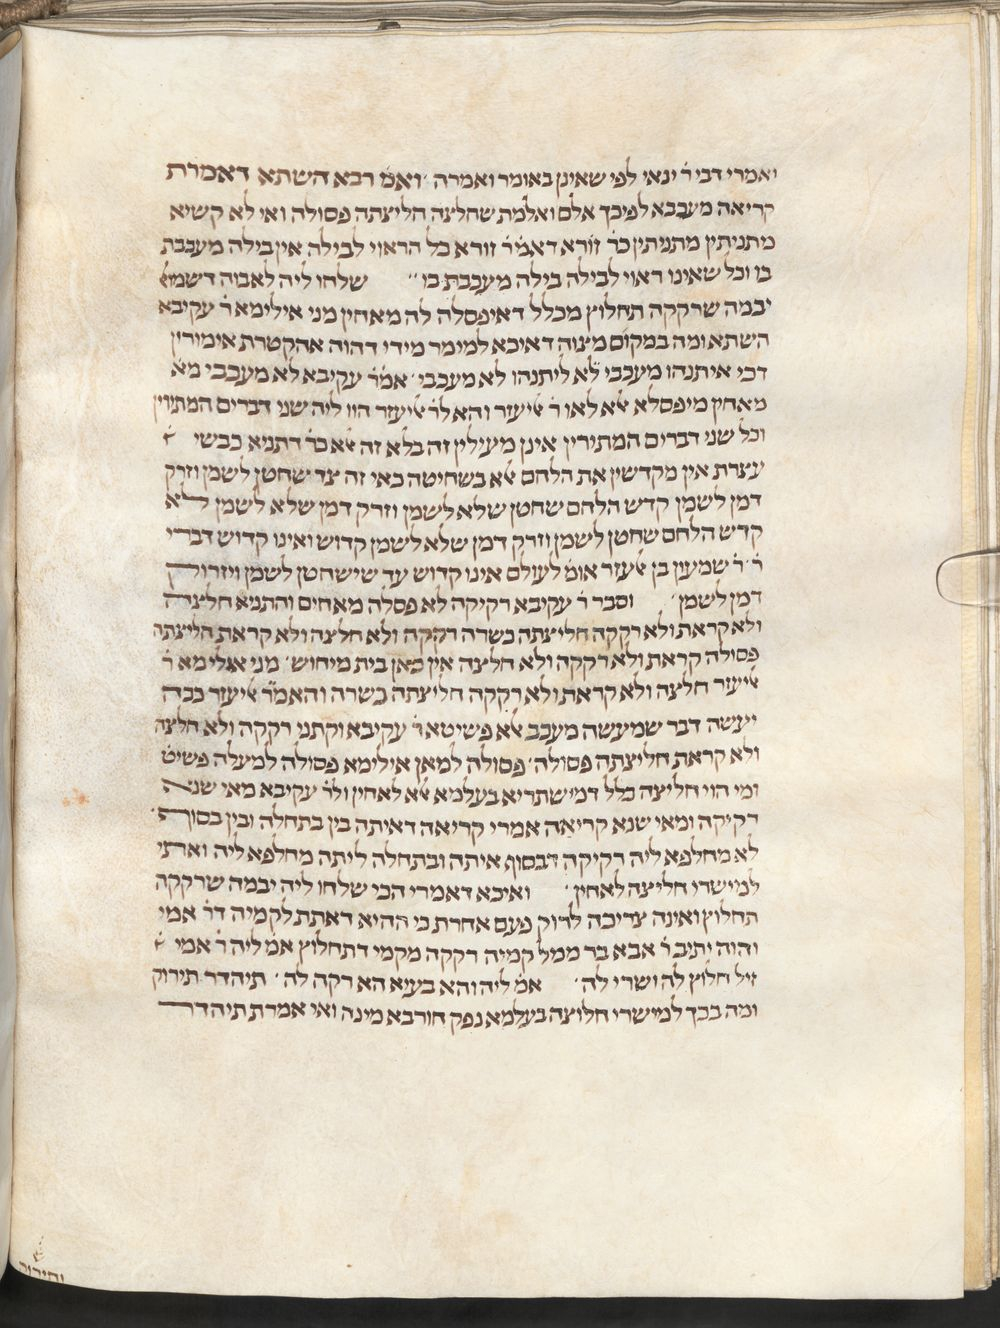 ואמרי דבי ר' ינאי לפי שאינן באומר ואמרה ' ואמ' רבא השתא דאמרת
קריאה מעכבא לפיכך אלם ואלמת שחלצה חליצתה פסולה ואי לא קשיא
מתניתין מתניתין כר' זורא דאמ' ר' זורא כל הראוי לבילה אין בילה מעכבת
בו וכל שאינו ראוי לבילה בילה מעכבת בו '' שלחו ליה לאבוה דשמו'
יבמה שרקקה תחלוץ מכלל דאיפסלה לה מאחין מני אילימא ר' עקיבא
השתא ומה במקום מצוה דאיכא למימר מידי דהוה אהקטרת אימורין
דכי איתנהו מעכבי לא ליתנהו לא מעכבי ' אמ' ר' עקיבא לא מעכבי מא'
מאחין מיפסלא אלא לאו ר' אליעזר והא לר' אליעזר הוו ליה שני דברים המתירין
וכל שני דברים המתירין אינן מעילין זה בלא זה אלא כר' דתניא כבשי
עצרת אין מקדשין את הלחם אלא בשחיטה כאי זה צד שחטן לשמן וזרק
דמן לשמן קדש הלחם שחטן שלא לשמן וזרק דמן שלא לשמן לא
קדש הלחם שחטן לשמן וזרק דמן שלא לשמן קדוש ואינו קדוש דברי
ר' ר' שמעון בן אלעזר אומ' לעולם אינו קדוש עד שישחטן לשמן ויזרוק
דמן לשמן ' וסבר ר' עקיבא רקיקה לא פסלה מאחים והתניא חלצה
ולא קראת ולא רקקה חליצתה כשרה רקקה ולא חלצה ולא קראת חליצתה
פסולה קראת ולא רקקה ולא חלצה אין כאן בית מיחוש ' מני אלימא ר'
אליעזר חלצה ולא קראת ולא רקקה חליצתה כשרה והאמ' ר' אליעזר ככה
יעשה דבר שמעשה מעכב אלא פשיטא ר' עקיבא וקתני רקקה ולא חלצה
ולא קראת חליצתה פסולה ' פסולה למאן אילימא פסולה למעלה פשיט'
ומי הוי חליצה כלל דמישתריא בעלמא אלא לאחין ולר' עקיבא מאי שנא
רקיקה ומאי שנא קריאה אמרי קריאה דאיתה בין בתחלה ובין בסוף '
לא מחלפא ליה רקיקה דבסוף איתה ובתחלה ליתה מחלפא ליה ואתי
למישרי חליצה לאחין ' ואיכא דאמרי הכי שלחו ליה יבמה שרקקה
תחלוץ ואינה צריכה לרוק פעם אחרת כי ההיא דאתת לקמיה דר' אמי
והוה יתיב ר' אבא בר ממל קמיה רקקה מקמי דתחלוץ אמ' ליה ר' אמי
זיל חלוץ לה ושרי לה ' אמ' ליה והא בעיא הא רקה לה ' תיהדר תירוק
ומה בכך למישרי חלוצה בעלמא נפק חורבא מינה ואי אמרת תיהדר